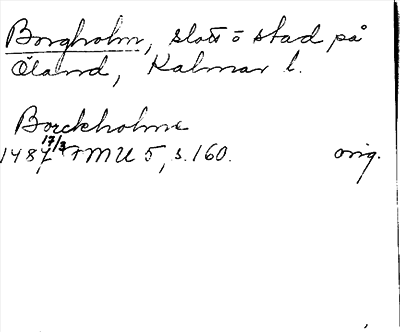 Borgholm, slott o stad på
Öland, Kalmar l.
Borckholme
1487 17/3 FMU 5, s. 160. orig.